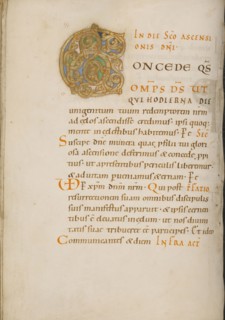 IN DIE SCO ASCENSI
ONIS DNI.
CONCEDE QS
OMPS DS UT
QUI HODIERNA DIE
unigenitum tuum redemptorem nrm
ad celos ascendisse credimus. ipsi quoq;
mente in celestibus habitemus. P
Suscipe dne munera quae p filii tui glorio
sa ascensione deferimus & concede. p
tius. ut a presentibus periculis liberemur
& ad uitam aeternam. P
xpm dnm nrm. Qui post
resurrectionem suam omnibus discipulis
suis manifestus apparuit. & ipsis cernen
tibus e eleuatus in celum. ut nos diuini
tatis suae tribueret ee participes. Et ido
Communicantes & diem INFRA ACT